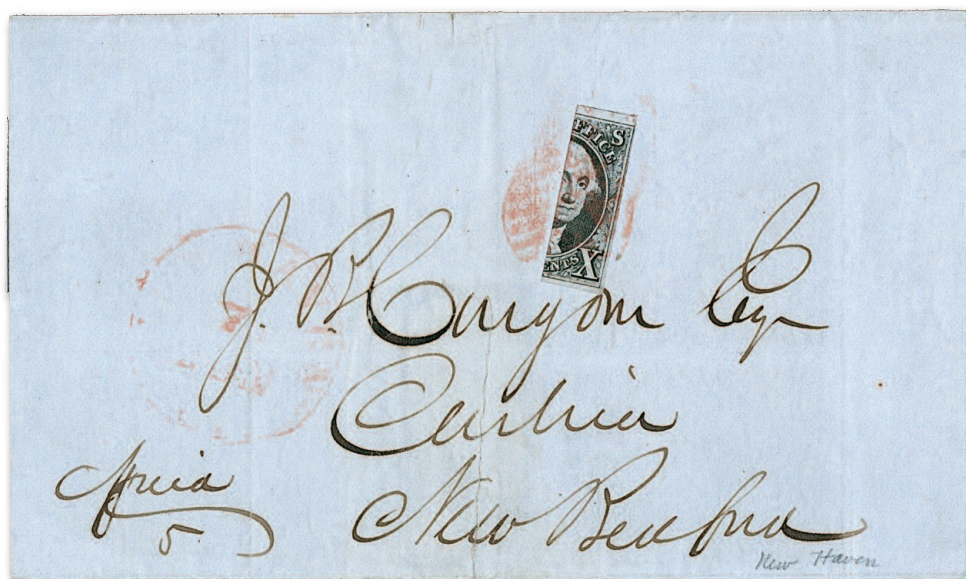 FFICE S
ENTS X
J. B. Congdon Esq
Cashier
5
New Bedford
New Haven